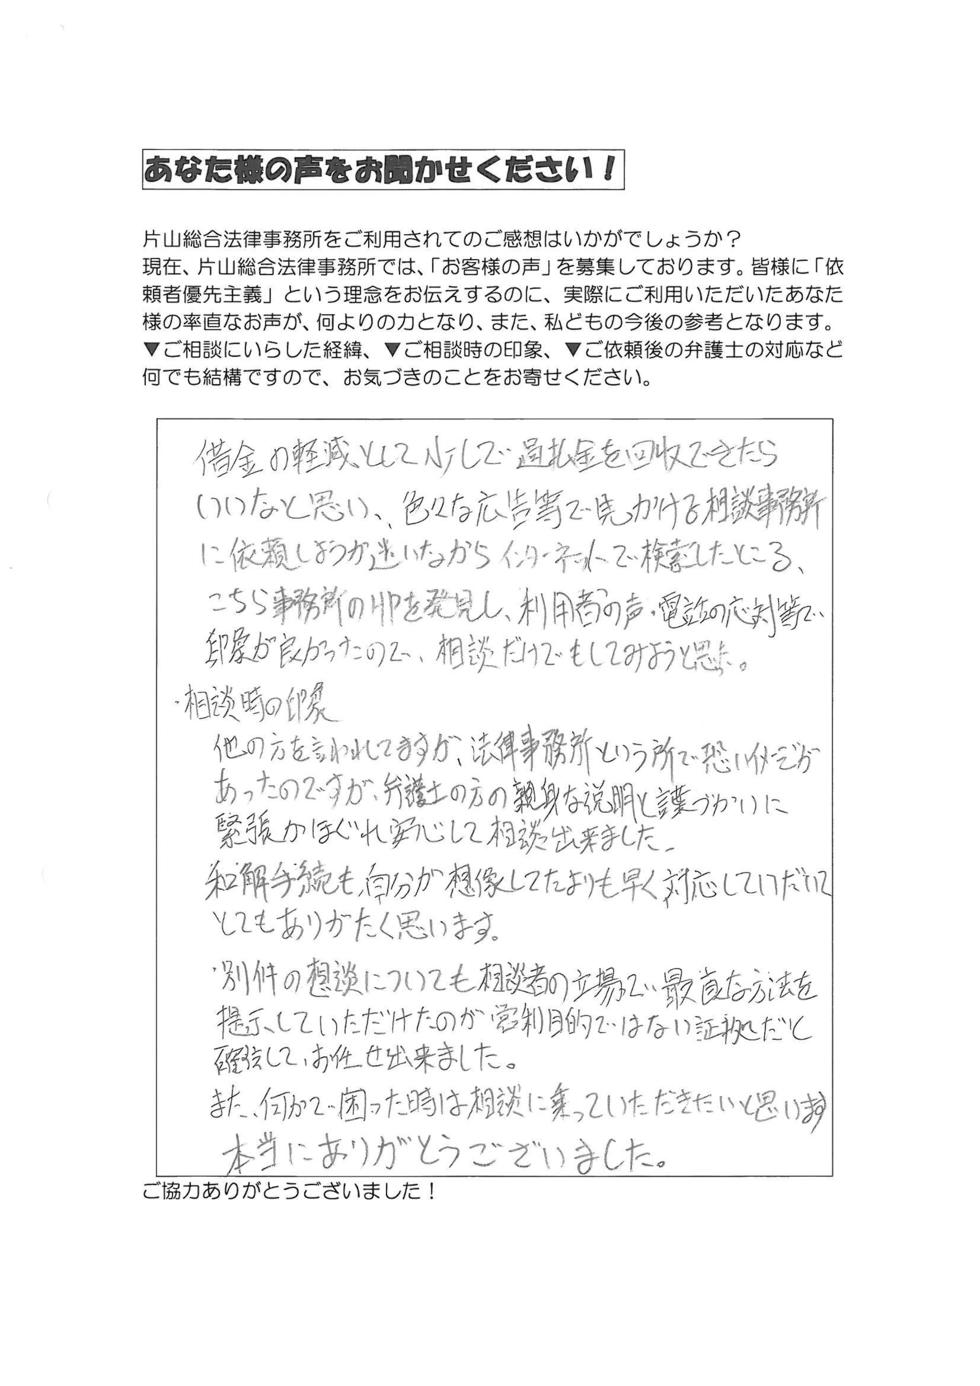 あなた様の声をお聞かせください！
片山総合法律事務所をご利用されてのご感想はいかがでしょうか？
現在、片山総合法律事務所では、「お客様の声」を募集しております。皆様に「依
頼者優先主義」という理念をお伝えするのに、実際にご利用いただいたあなた
様の率直なお声が、何よりの力となり、また、私どもの今後の参考となります。
▼ご相談にいらした経緯、▼ご相談時の印象、▼ご依頼後の弁護士の対応など
何でも結構ですので、お気づきのことをお寄せください。
借金の軽減として少しで過払金を回収できたら
いいなと思い、色々な広告等で見かける相談事務所
に依頼しようか迷いながらインターネットで検索したところ、
こちら事務所のHPを発見し、利用者の声・電話の応対等で
印象が良かったので、相談だけでもしてみようと思った。
・相談時の印象
他の方を言われてますが、法律事務所という所で恐いイメージが
あったのですが、弁護士の方の親身な説明と言葉づかいに
緊張がほぐれ安心して相談出来ました。
和解手続も、自分が想像してたよりも早く対応していただいて
とてもありがたく思います。
・別件の想談についても相談者の立場で最良な方法を
提示していただけたのが営利目的ではない証拠だと
確信して、お任せ出来ました。
また、何かで困った時は相談に乗っていただきたいと思います
本当にありがとうございました。
ご協力ありがとうございました！